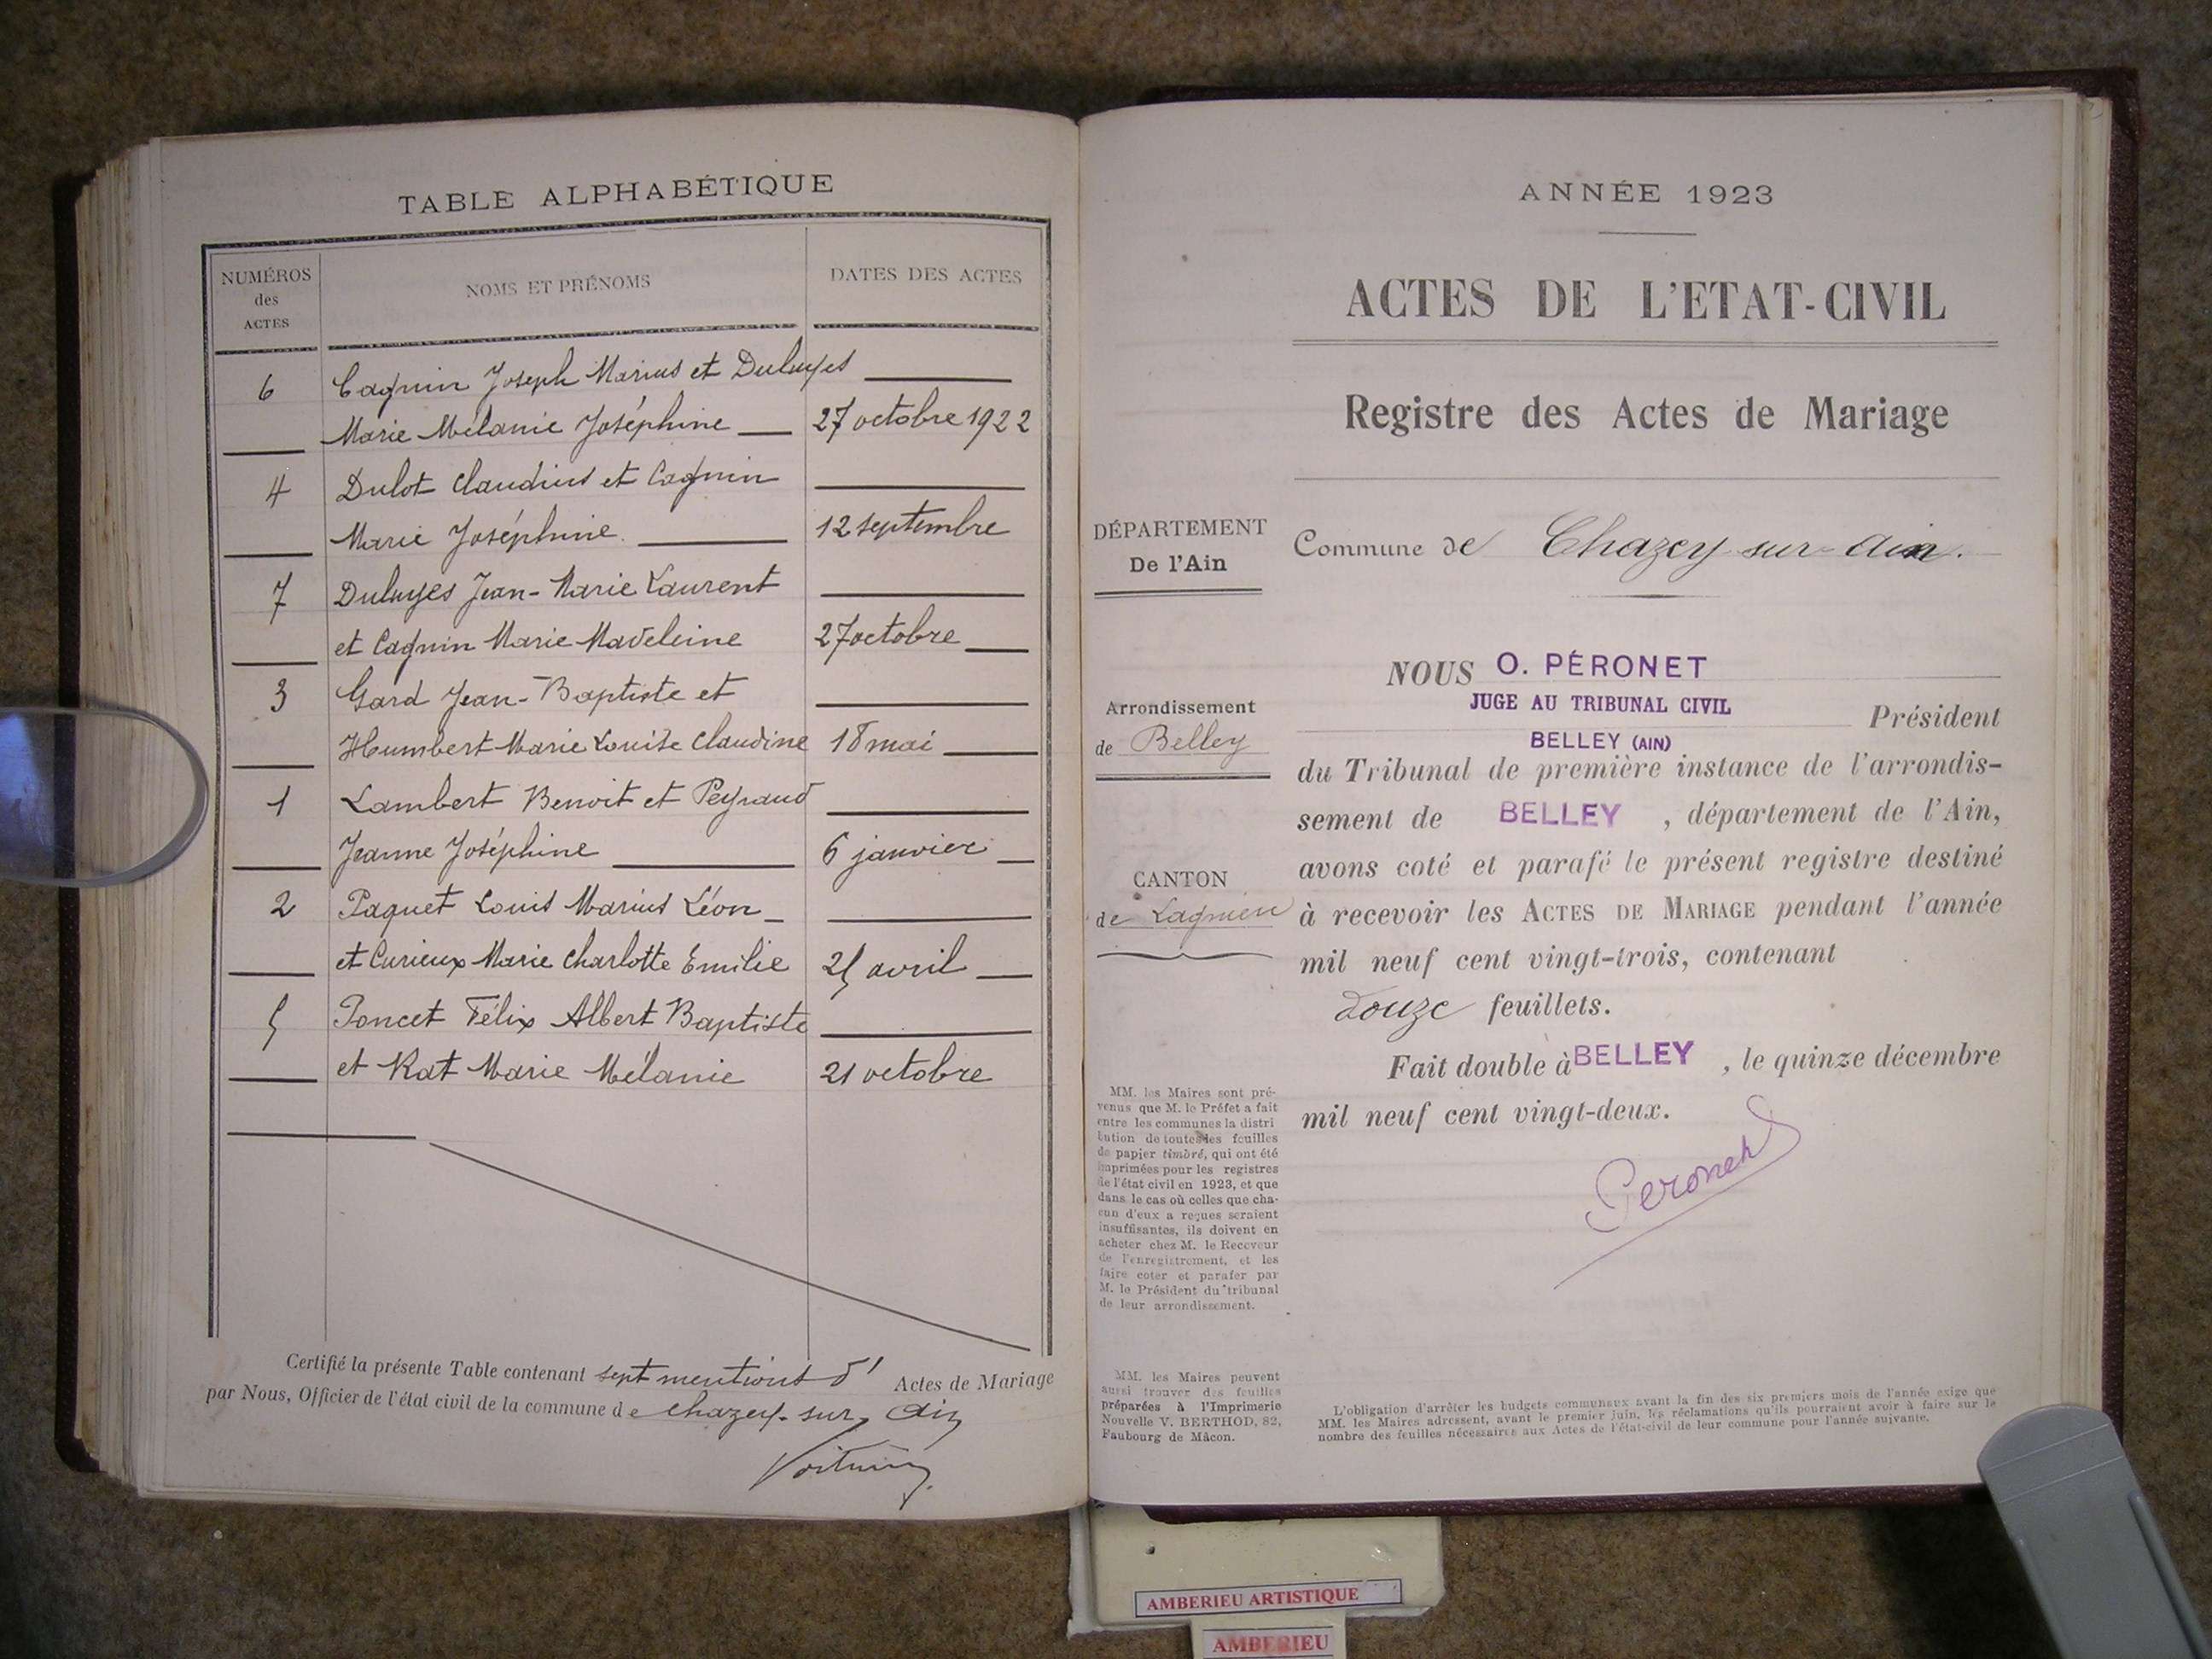 TABLE ALPHABÉTIQUE
NUMÉROS
des
ACTES
NOMS ET PRÉNOMS
DATES DES ACTES
6 Cagnin Joseph Marius et Duluyes
Marie Mélanie Joséphine 27 octobre 1922
4 Dulot Claudius et Cagnin
Marie Joséphine. 12 septembre
7 Duluyes Jean-Marie Laurent
et Cagnin Marie Madeleine 27 octobre
3 Gard Jean-Baptiste et
Humbert Marie Louise Claudine 18 mai
1 Lambert Benoit et Peyraud
Jeanne Joséphine 6 janvier
2 Paquet Louis Marius Léon
et Curieux Marie Charlotte Emilie 25 avril
5 Poncet Félix Albert Baptiste
et Rat Marie Mélanie 21 octobre
Certifié la présente Table contenant sept mentions d' Actes de Mariage
par Nous, Officier de l'état civil de la commune de Chazey-sur-Ain
ANNÉE 1923
ACTES DE L'ETAT-CIVIL
Registre des Actes de Mariage
DÉPARTEMENT
De l'Ain
Commune de Chazey-sur-Ain.
Arrondissement
de Belley
CANTON
de Lagnieu
NOUS O. PÉRONET
JUGE AU TRIBUNAL CIVIL
Président
BELLEY (AIN)
du Tribunal de première instance de l'arrondis-
sement de BELLEY, département de l'Ain,
avons coté et parafé le présent registre destiné
à recevoir les ACTES DE MARIAGE pendant l'année
mil neuf cent vingt-trois, contenant
Douze feuillets.
Fait double à BELLEY, le quinze décembre
mil neuf cent vingt-deux.
Peronet
MM. les Maires sont pré-
venus que M. le Préfet a fait
entre les communes la distri
bution de toutes les feuilles
de papier timbré, qui ont été
imprimées pour les registres
de l'état civil en 1923, et que
dans le cas où celles que cha-
cun d'eux a reçues seraient
insuffisantes, ils doivent en
acheter chez M. le Receveur
de l'enregistrement, et les
faire coter et parafer par
M. le Président du tribunal
de leur arrondissement.
MM. les Maires peuvent
aussi trouver des feuilles
préparées à l'Imprimerie
Nouvelle V. BERTHOD, 82,
Faubourg de Mâcon.
L'obligation d'arrêter les budgets communaux avant la fin des six premiers mois de l'année exige que
MM. les Maires adressent, avant le premier juin, les réclamations qu'ils pourraient avoir à faire sur le
nombre des feuilles nécessaires aux Actes de l'état-civil de leur commune pour l'année suivante.
AMBERIEU ARTISTIQUE
AMBERIEU